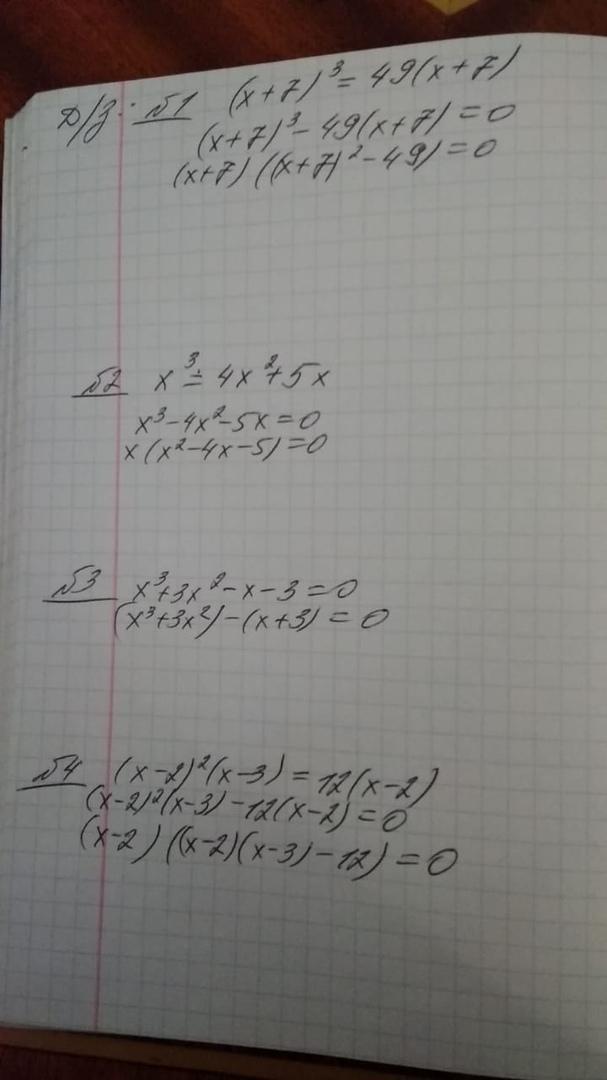 Д/з: №1 (x+7)³ = 49(x+7)
(x+7)³ - 49(x+7) = 0
(x+7)((x+7)² - 49) = 0
№2 x³ = 4x² + 5x
x³ - 4x² - 5x = 0
x(x² - 4x - 5) = 0
№3 x³ + 3x² - x - 3 = 0
(x³ + 3x²) - (x+3) = 0
№4 (x-2)²(x-3) = 12(x-2)
(x-2)²(x-3) - 12(x-2) = 0
(x-2)((x-2)(x-3) - 12) = 0